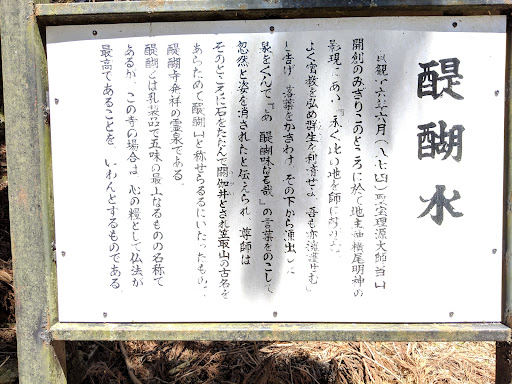 醍醐水
貞観十六年六月(八七四)聖宝理源大師当山
開創のみぎりこのところに於て地主神横尾明神の
影現にあい、『永く此の地を師に
よく密教を弘め群生を利済せよ 吾も亦擁護せむ』
と告げ 落葉をかきわけ その下から湧出した
泉をくんで『あゝ醍醐味なる哉』の言葉をのこして
忽然と姿を消されたと伝えられ 尊師は
そのところに石をたたんで閼伽井とされ笠取山の古名を
あらためて醍醐山と称せらるるにいたったもので、
醍醐寺発祥の霊泉である。
醍醐とは乳製品で五味の最上なるものの名称で
あるが、この寺の場合は 心の糧として仏法が
最高であることを、いわんとするものである。